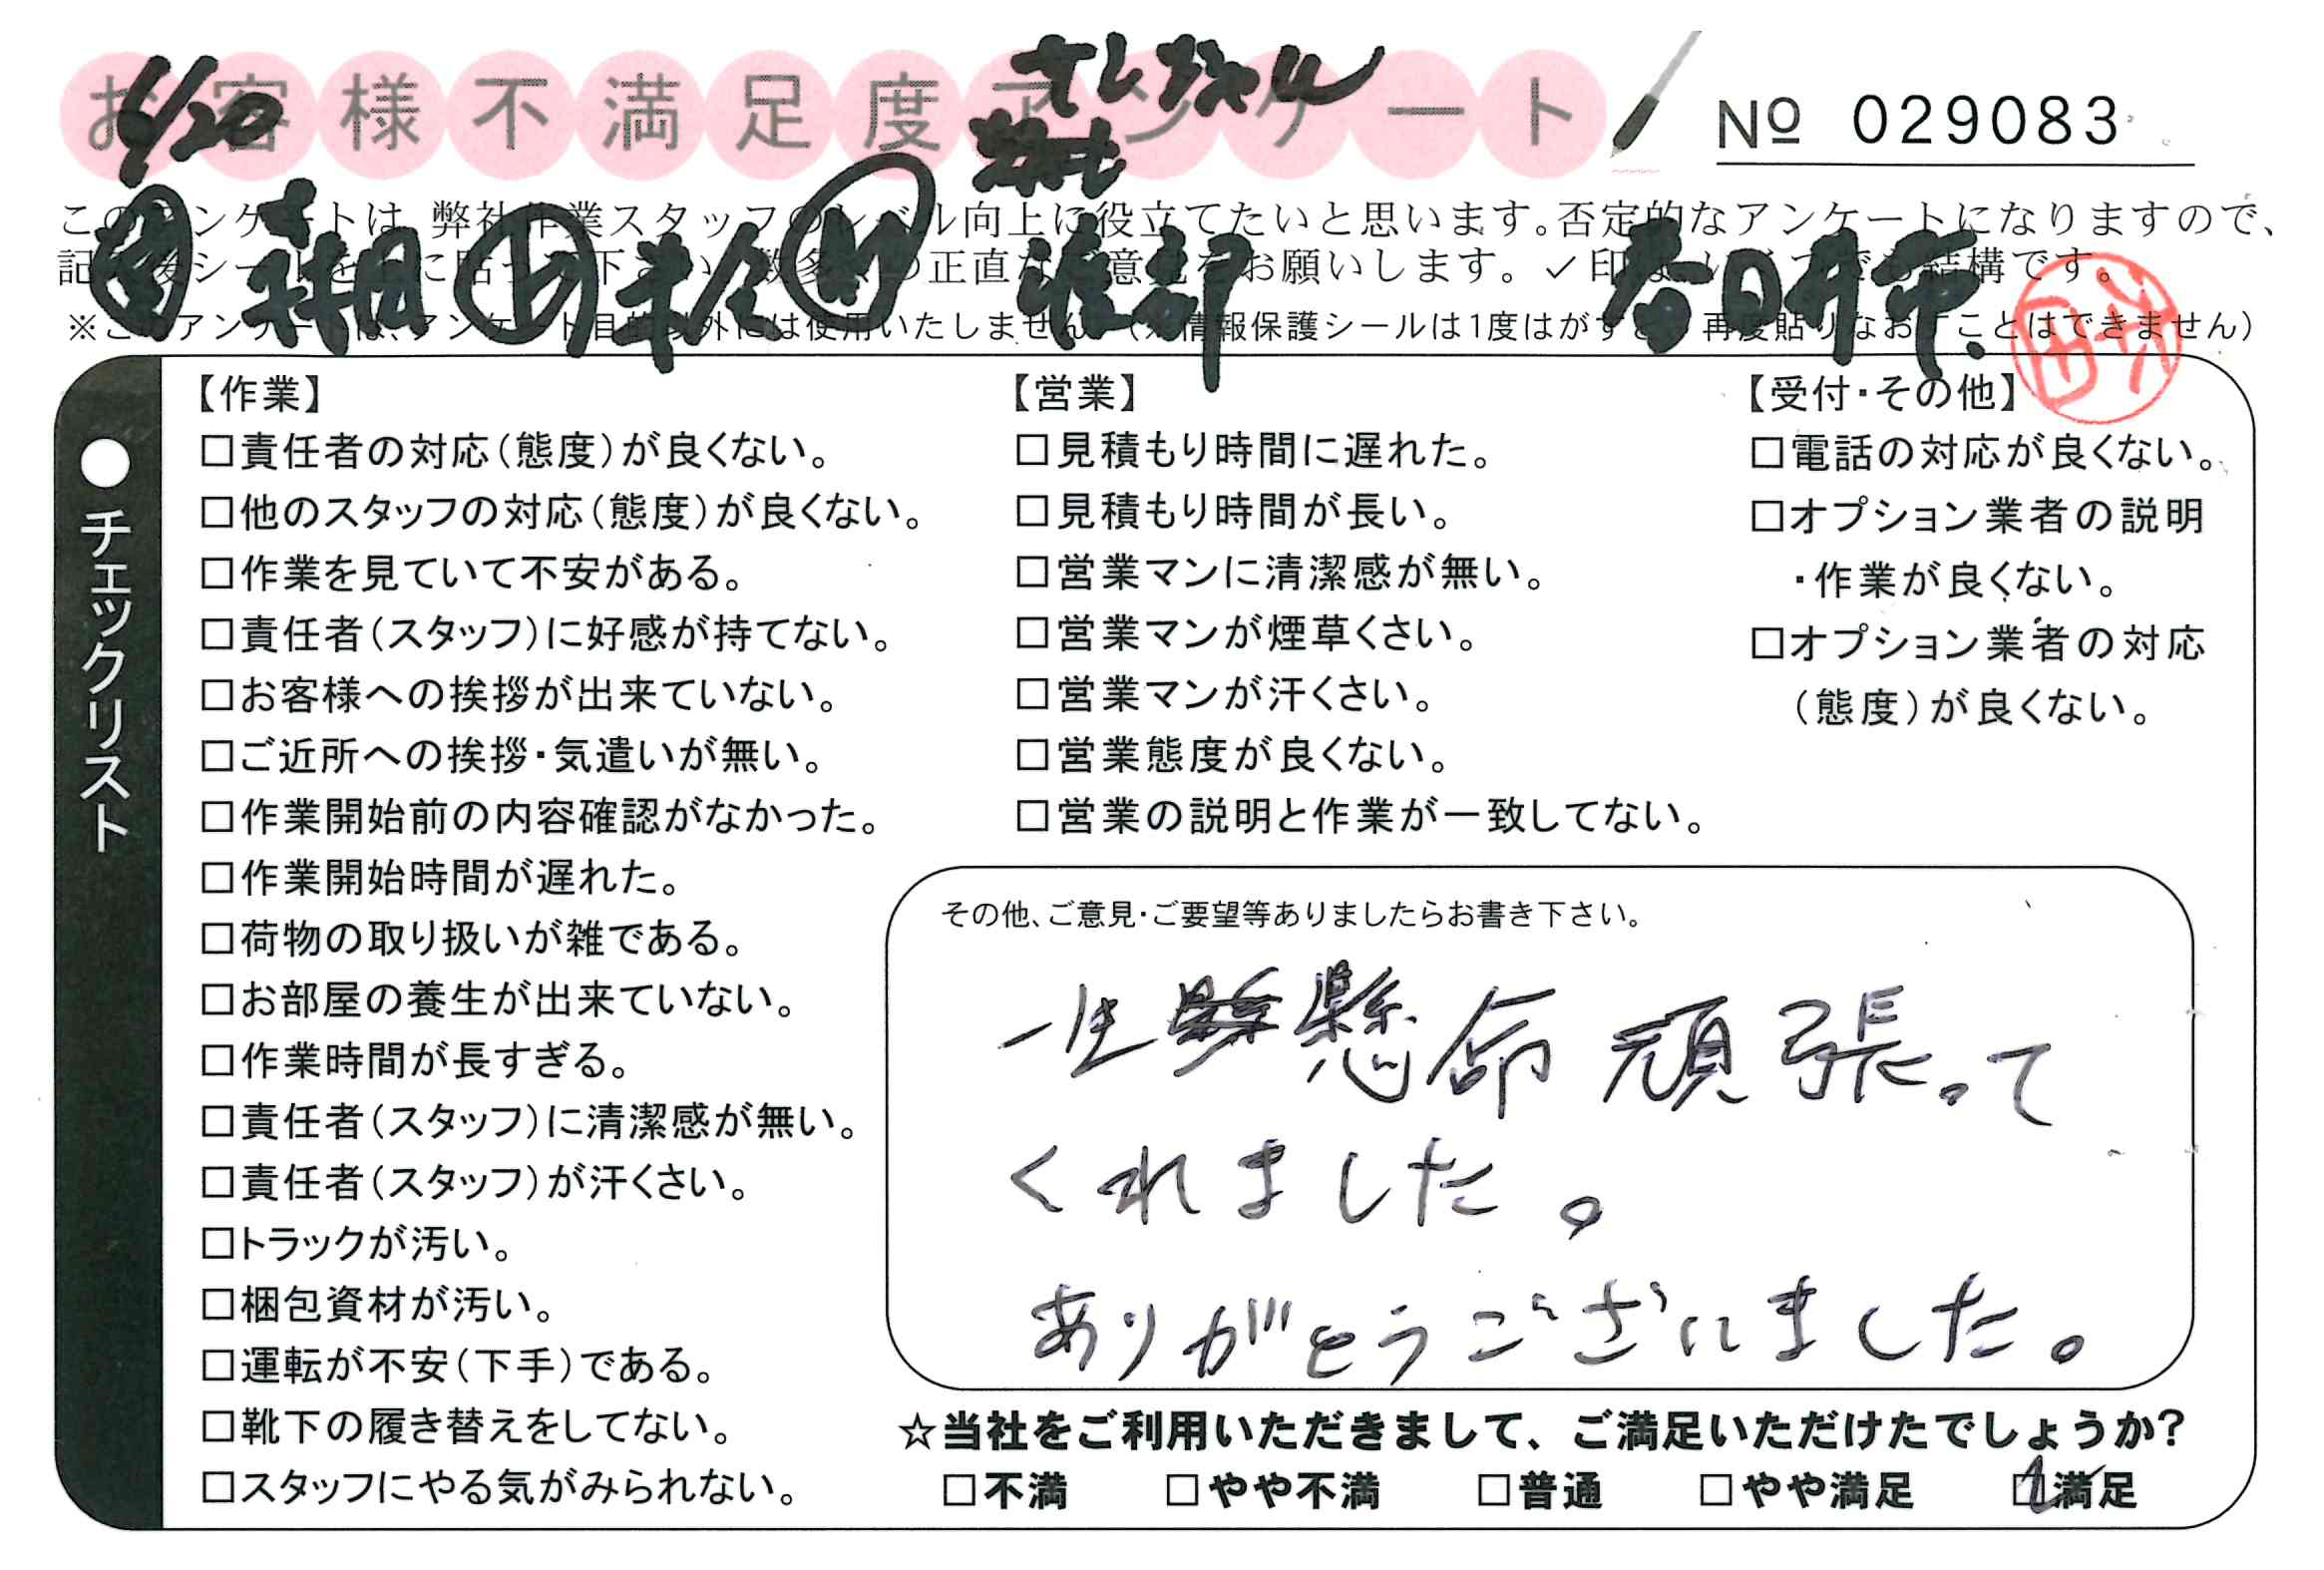 お客様不満足度アンケート
6/20
No 029083
このアンケートは、弊社作業スタッフのレベル向上に役立てたいと思います。否定的なアンケートになりますので、
記入後シールを上に貼って下さい。数多くの正直なご意見をお願いします。✓印はいくつでも結構です。
※このアンケートは、アンケート目的以外には使用いたしません。(※情報保護シールは1度はがすと、再度貼りなおすことはできません)
春日井市
●チェックリスト
【作業】
□責任者の対応(態度)が良くない。
□他のスタッフの対応(態度)が良くない。
□作業を見ていて不安がある。
□責任者(スタッフ)に好感が持てない。
□お客様への挨拶が出来ていない。
□ご近所への挨拶・気遣いが無い。
□作業開始前の内容確認がなかった。
□作業開始時間が遅れた。
□荷物の取り扱いが雑である。
□お部屋の養生が出来ていない。
□作業時間が長すぎる。
□責任者(スタッフ)に清潔感が無い。
□責任者(スタッフ)が汗くさい。
□トラックが汚い。
□梱包資材が汚い。
□運転が不安(下手)である。
□靴下の履き替えをしてない。
□スタッフにやる気がみられない。
【営業】
□見積もり時間に遅れた。
□見積もり時間が長い。
□営業マンに清潔感が無い。
□営業マンが煙草くさい。
□営業マンが汗くさい。
□営業態度が良くない。
□営業の説明と作業が一致してない。
【受付・その他】
□電話の対応が良くない。
□オプション業者の説明
・作業が良くない。
□オプション業者の対応
(態度)が良くない。
その他、ご意見・ご要望等ありましたらお書き下さい。
一生懸命 頑張って
くれました。
ありがとうございました。
☆当社をご利用いただきまして、ご満足いただけたでしょうか?
□不満 □やや不満 □普通 □やや満足 ☑満足